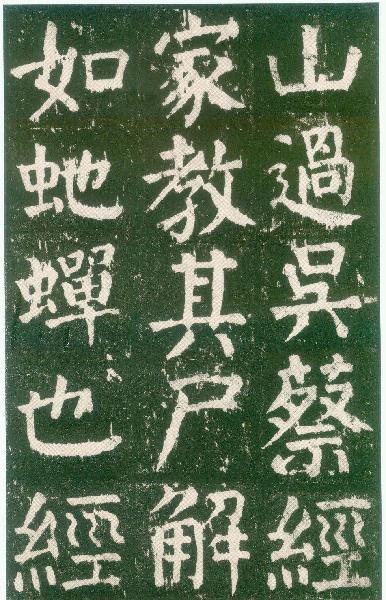 山過吳蔡經
家教其尸解
如虵蟬也經